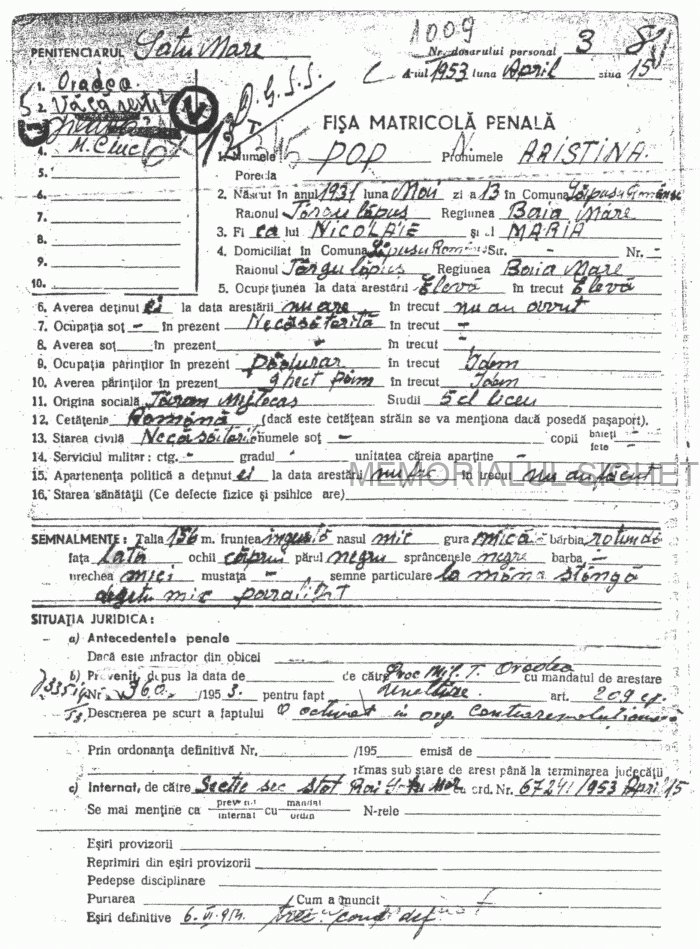 1009
PENITENCIARUL Satu Mare
Nr. dosarului personal 3
A-iul 1953 luna April ziua 15
1. Oradea
2. Văcărești
3.
4. M. Ciuc
5.
6.
7.
8.
9.
10.
D.G.S.S.
FIŞA MATRICOLĂ PENALĂ
1. Numele POP Pronumele ARISTINA.
Porecla
2. Născut în anul 1931 luna Mai zi a 13 în Comuna Lăpușu Românesc
Raionul Târgu Lăpuș Regiunea Baia Mare
3. Fi ca lui NICOLAIE și al MARIA
4. Domiciliat în Comuna Lăpușu Românesc Str. - Nr. -
Raionul Târgu Lăpuș Regiunea Baia Mare
5. Ocupațiunea la data arestării Elevă în trecut Elevă
6. Averea deținut ei la data arestării nu are în trecut nu au avut
7. Ocupația soț - în prezent Necăsătorită în trecut -
8. Averea soț în prezent - în trecut -
9. Ocupația părinților în prezent Pădurar în trecut Idem
10. Averea părinților în prezent 9 hect păm în trecut Idem
11. Origina socială Țăran Mijlocaș Studii 5 cl liceu
12. Cetățenia Română (dacă este cetățean străin se va menționa dacă posedă pașaport).
13. Starea civilă Necăsătorită numele soț - copii băieți - fete -
14. Serviciul militar: ctg. - gradul - unitatea căreia aparține -
15. Apartenența politică a deținut ei la data arestării nu fac în trecut nu au făcut
MEMORIALUL SIGHET
16. Starea sănătății (Ce defecte fizice și psihice are)
SEMNALMENTE: Talia 156 m. fruntea îngustă nasul mic gura mică bărbia rotundă
fața lată ochii căprui părul negru sprâncenele negre barba -
urechea mici mustața - semne particulare la mâna stângă
degetu mic paralizat
SITUAȚIA JURIDICA:
a) Antecedentele penale
Dacă este infractor din obicei
b) Prevenit, depus la data de de către Proc Mil. T. Oradea cu mandatul de arestare
Nr. 360 /195 3. pentru fapt Uneltire art. 209 cp.
Descrierea pe scurt a faptului A activat în org. contrarevoluționară
Prin ordonanța definitivă Nr. /195 emisă de
rămas sub stare de arest până la terminarea judecății
c) Internat, de către Secție sec Stat Rai Satu Mare cu ord. Nr. 67241/1953 April 15
Se mai menține ca prevenit internat cu mandat ordin N-rele
Eșiri provizorii
Reprimiri din eșiri provizorii
Pedepse disciplinare
Purtarea Cum a muncit
Eșiri definitive 6. VI. 954 cond def.